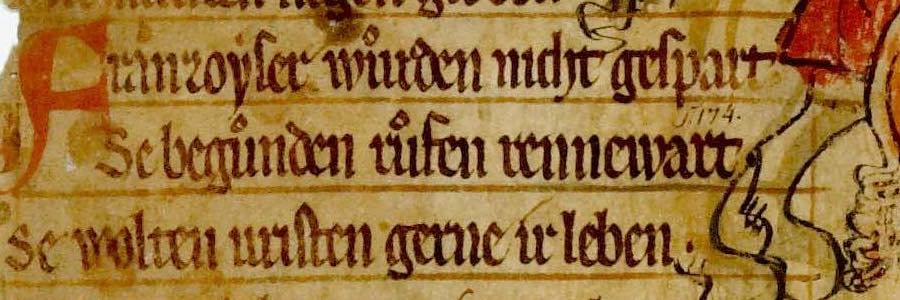 Franzoyser wůrden nicht gespart
J. 174.
Se begůnden růfen rennewart
Se wolten vristen gerne ir leben.